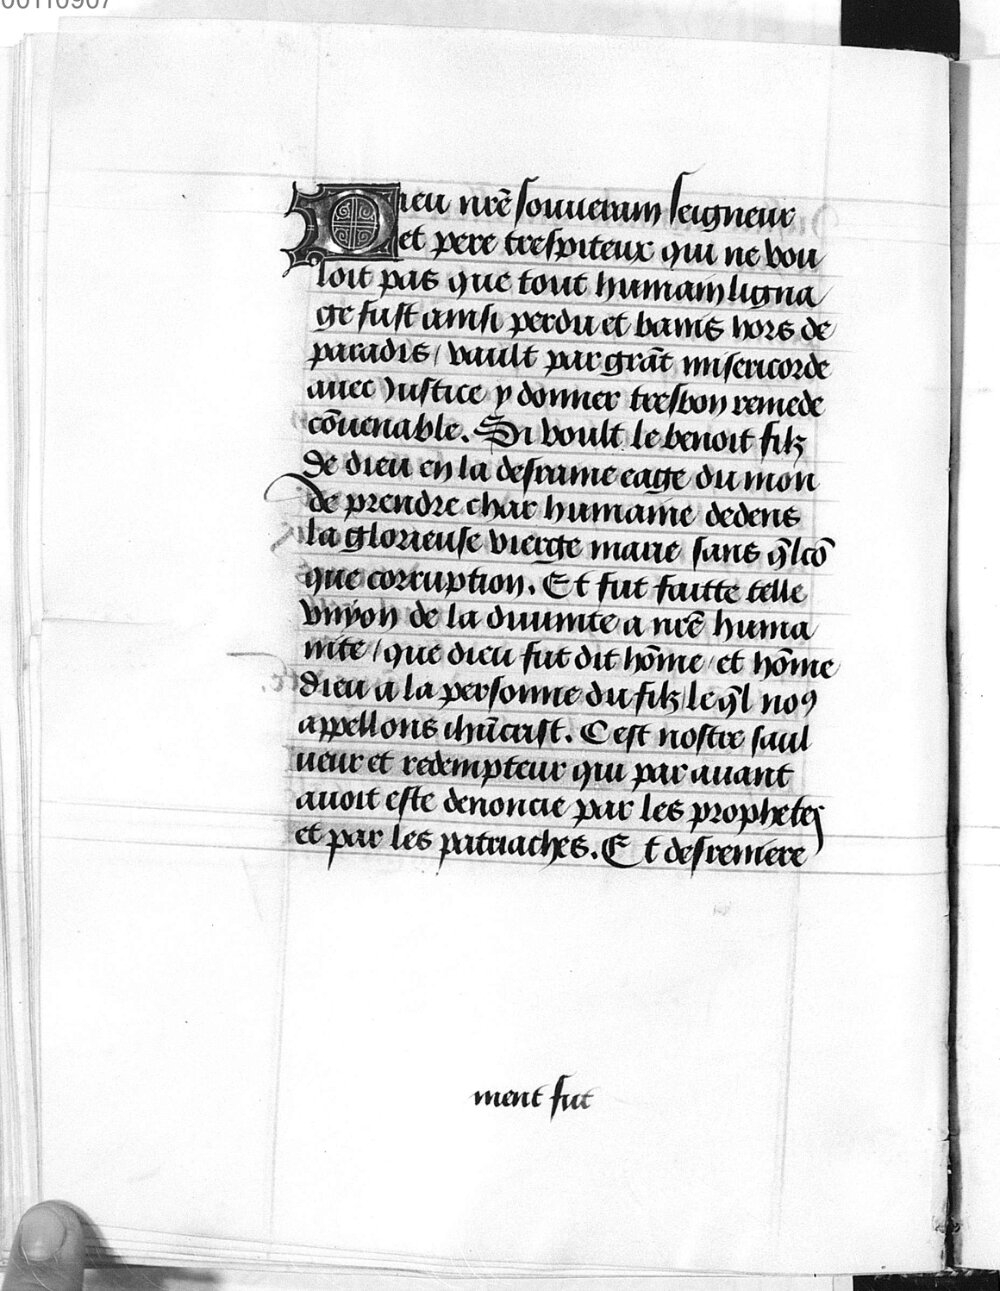 00110907
Dieu nr̄e souuerain seigneur
et pere trespiteux qui ne vou
loit pas que tout humain ligna
ge fust ainsi perdu et banis hors de
paradis / vault par grāt misericorde
auec Justice y donner tresbon remede
cōuenable. Si voult le benoit filz
de dieu en la desraine eage du mon
de prendre char humaine dedens
la glorieuse vierge marie sans q̄lcō
que corruption. Et fut faitte telle
vnyon de la diuinite a nr̄e huma
nite / que dieu fut dit hōme / et hōme
dieu a la personne du filz le q̄l noꝰ
appellons ihūcrist. C est nostre saul
ueur et redempteur qui par auant
auoit este denoncie par les prophetes
et par les patriaches. Et desreniere
ment fut